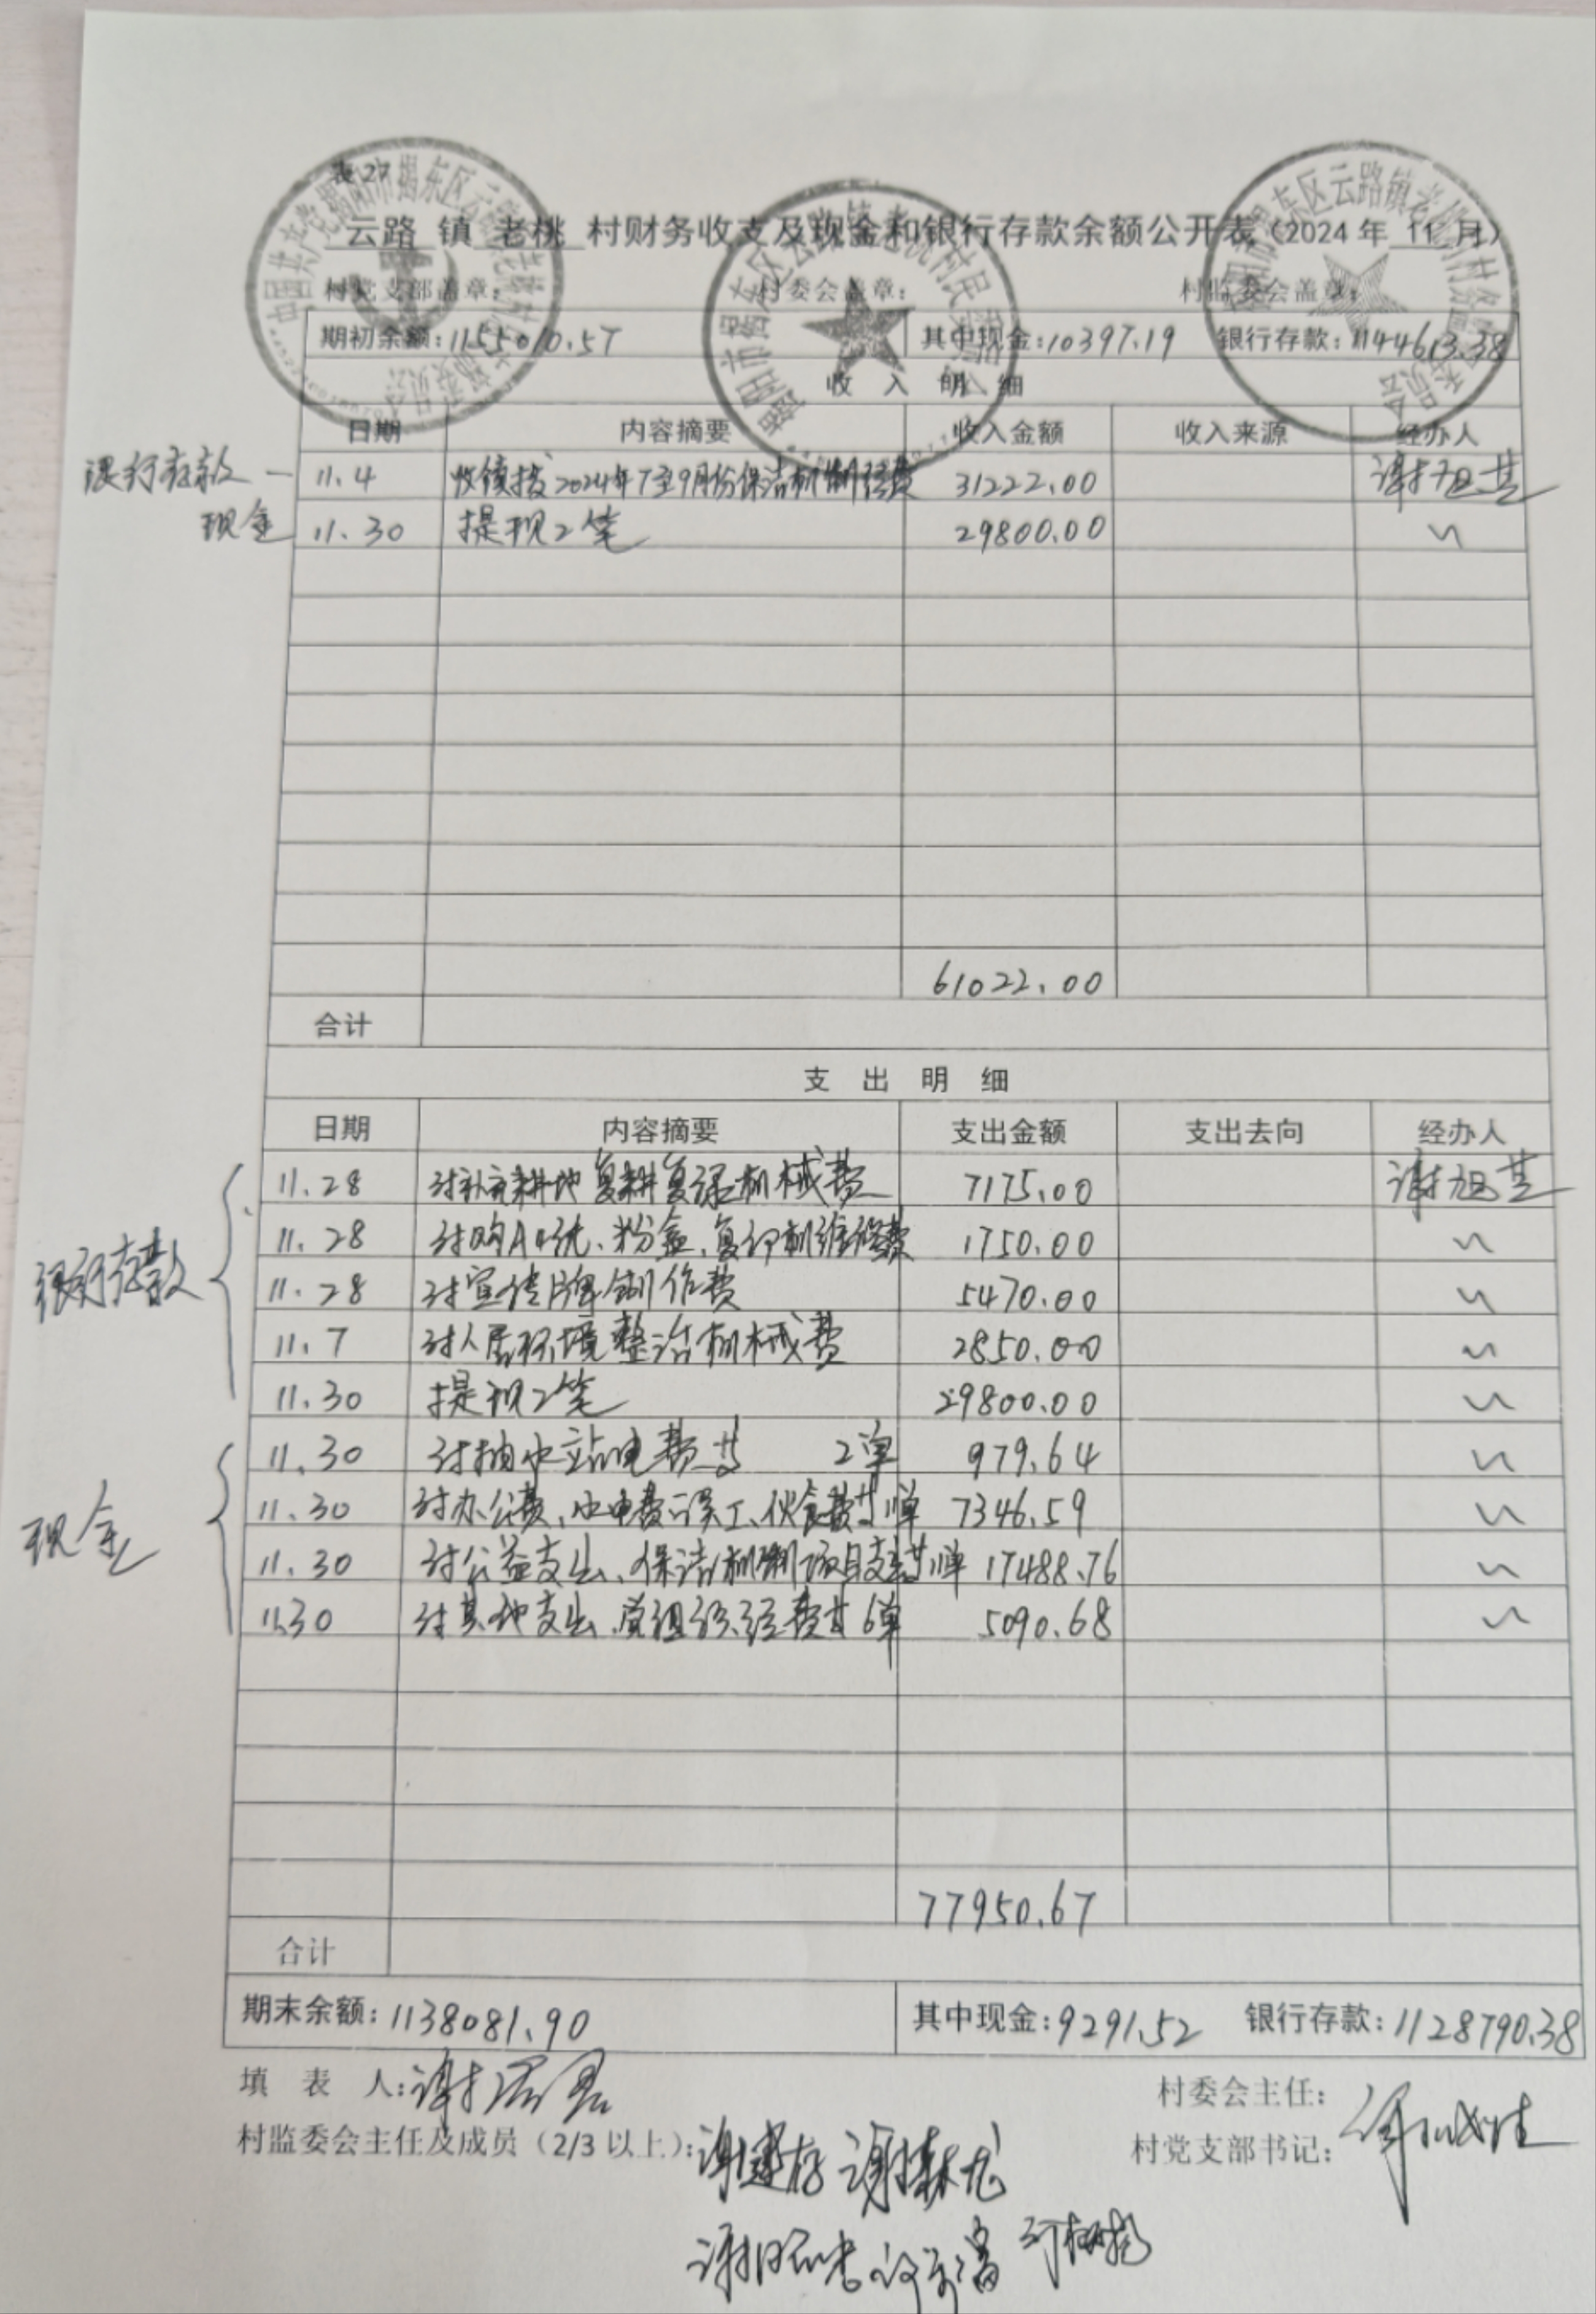 表 27
云路 镇 老桃 村财务收支及现金和银行存款余额公开表（2024 年 11 月）
村党支部盖章： 村委会盖章： 村监委会盖章：
期初余额：1155010.57 其中现金：10397.19 银行存款：1144613.38
收 入 明 细
日期 内容摘要 收入金额 收入来源 经办人
银行存款 — 11.4 收镇拨2024年7至9月份保洁机制经费 31222.00 谢旭芝
现金 11.30 提现2笔 29800.00 〃
61022.00
合计
支 出 明 细
日期 内容摘要 支出金额 支出去向 经办人
11.28 对补充耕地复耕复绿机械费 7175.00 谢旭芝
11.28 对购A4纸、粉盒、复印机维修费 1750.00 〃
银行存款
11.28 对宣传牌制作费 5470.00 〃
11.7 对人居环境整治机械费 2850.00 〃
11.30 提现2笔 29800.00 〃
11.30 对抽水站电费共 2单 979.64 〃
现金
11.30 对办公费、水电费、误工、伙食费共 单 7346.59 〃
11.30 对公益支出、保洁机制项目支出共 单 17488.76 〃
11.30 对其他支出、党组织经费共6单 5090.68 〃
77950.67
合计
期末余额：1138081.90 其中现金：9291.52 银行存款：1128790.38
填 表 人： 村委会主任：
村监委会主任及成员（2/3 以上）： 村党支部书记：